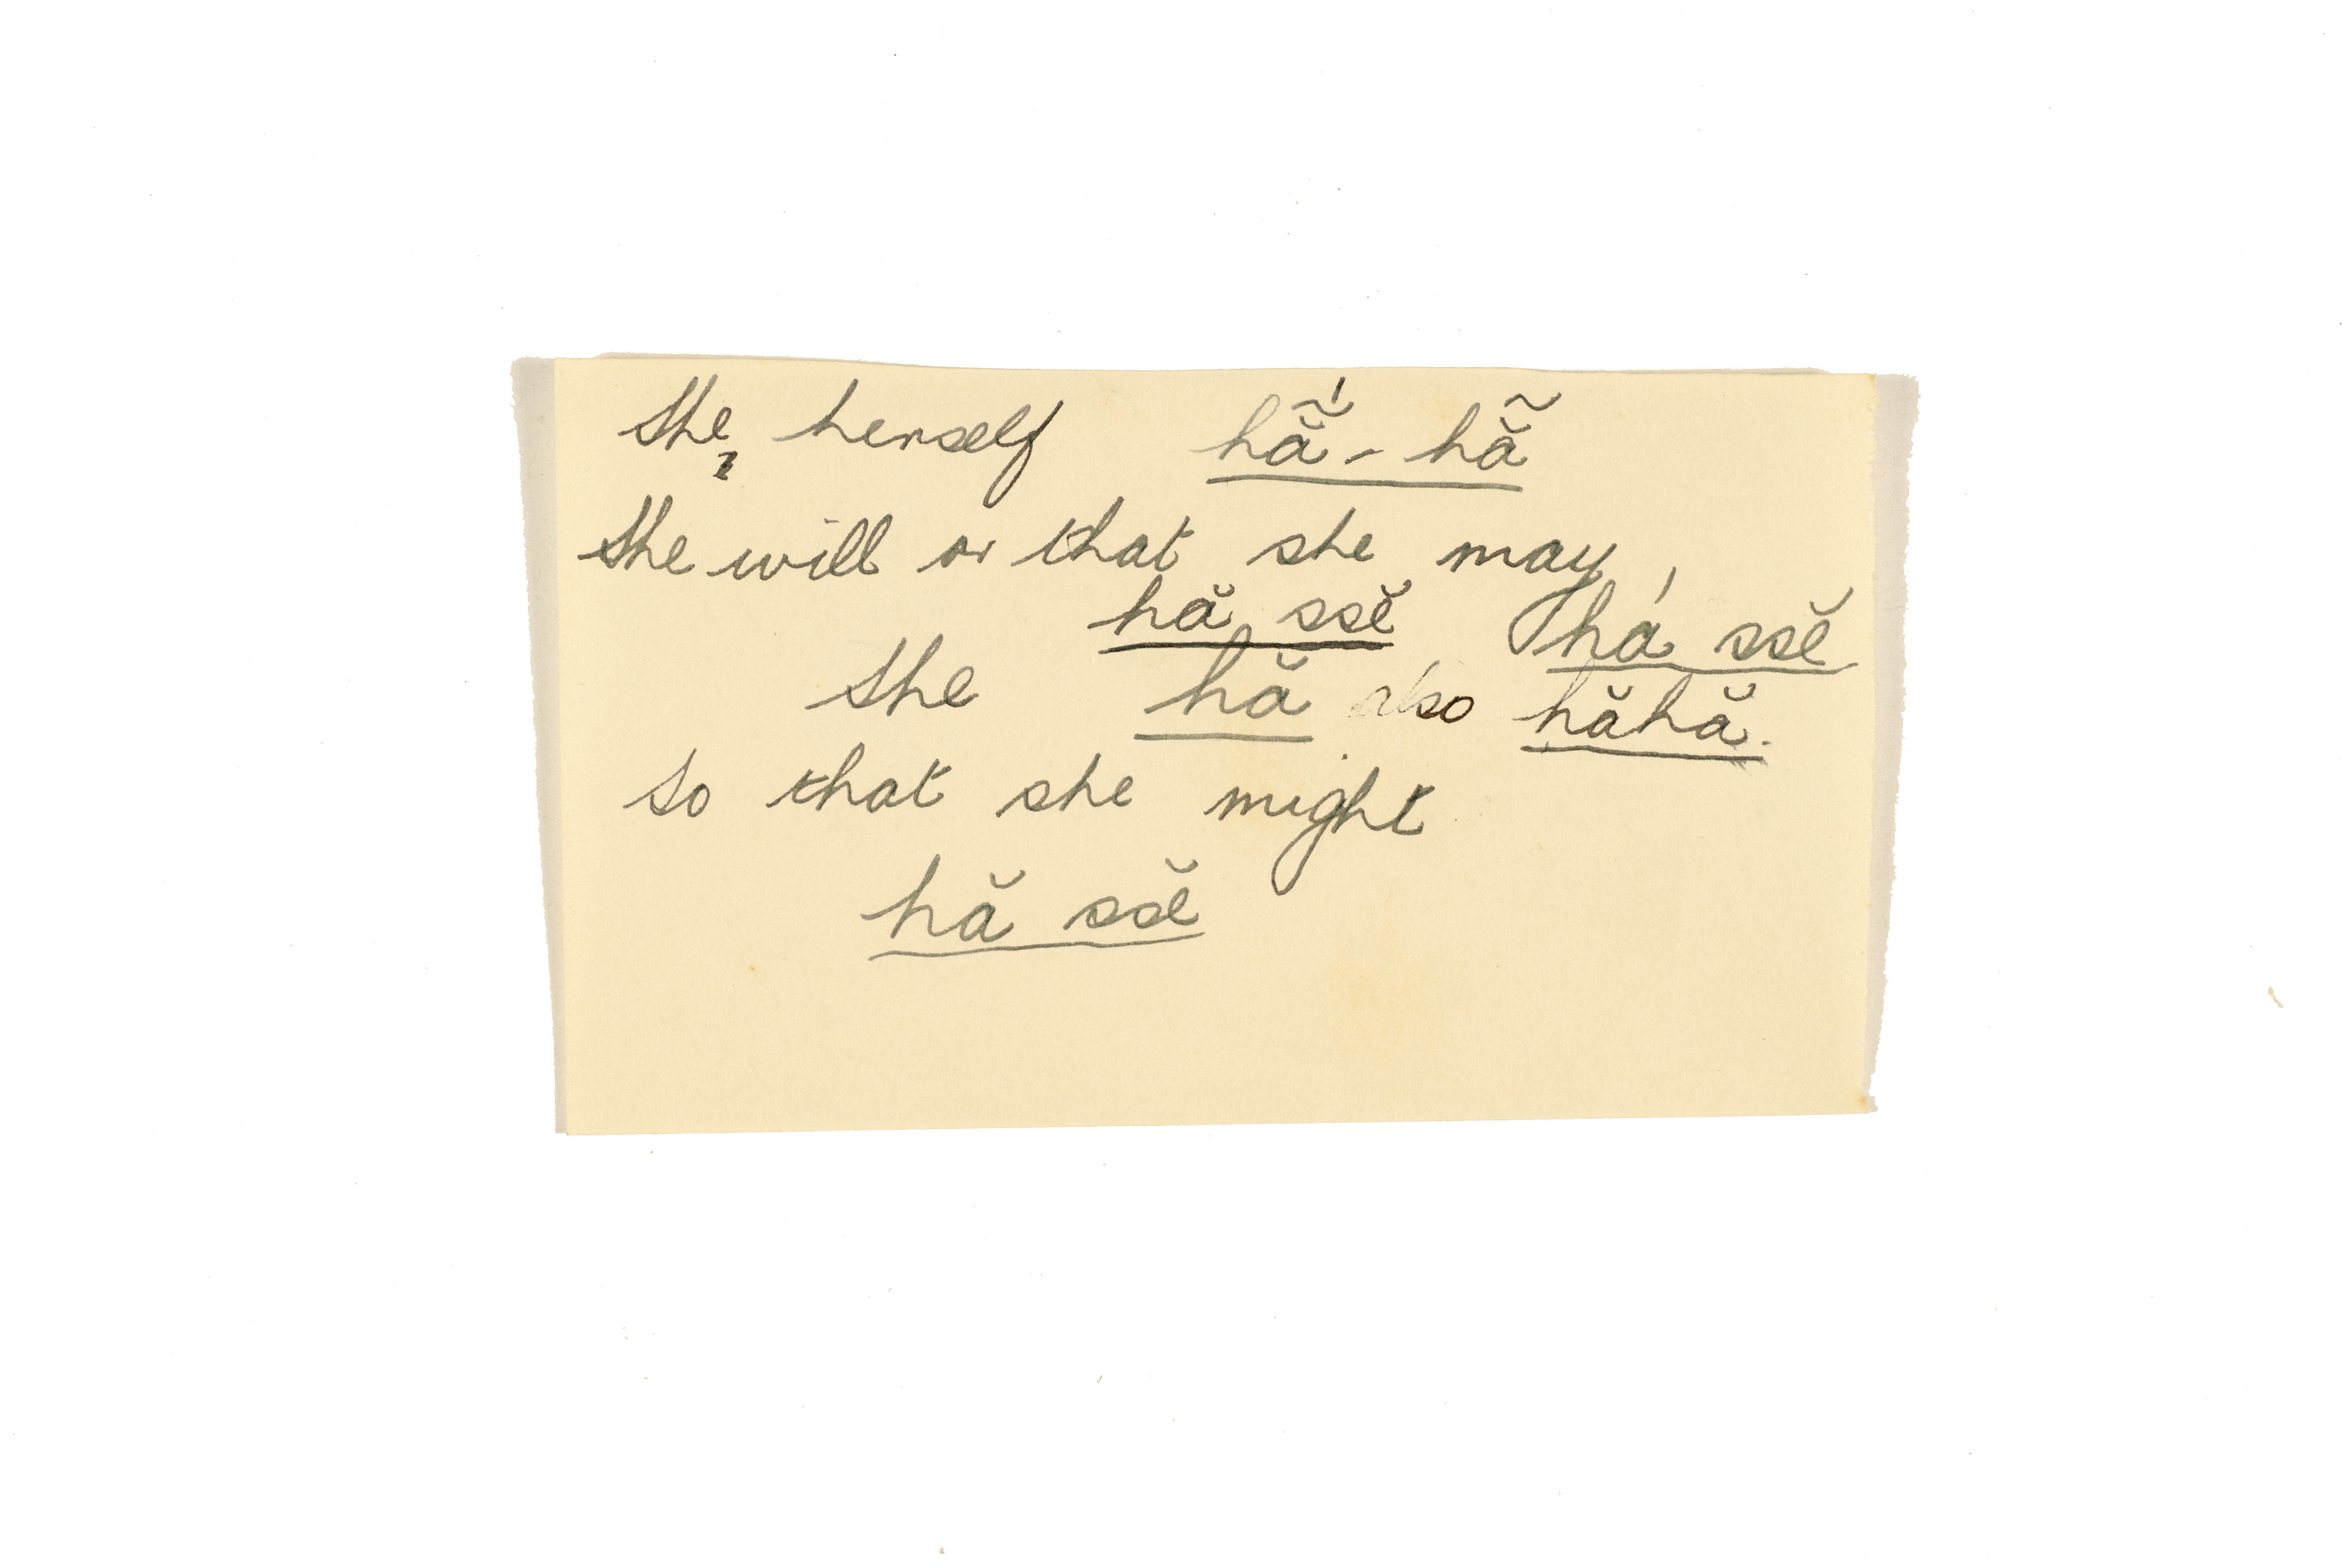 She, herself hẵ́ - hẵ
She will or that she may,
hă ssĕ há ssĕ
She hă also hăhă.
so that she might
hă ssĕ